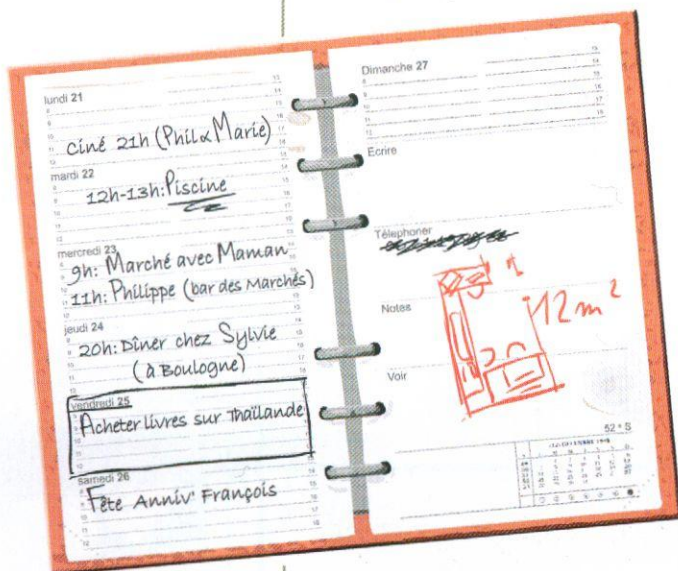 lundi 21
ciné 21h (Phil & Marie)
mardi 22
12h-13h: Piscine
mercredi 23
9h: Marché avec Maman
11h: Philippe (bar des Marchés)
jeudi 24
20h: Dîner chez Sylvie
(à Boulogne)
vendredi 25
Acheter livres sur Thaïlande
samedi 26
Fête Anniv' François
Dimanche 27
Ecrire
Téléphoner
Notes
12 m²
Voir
52 * S